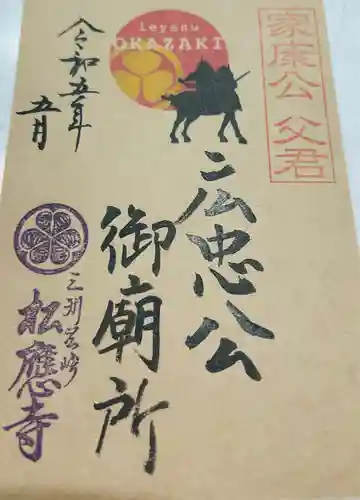 家康公 父君
Ieyasu
OKAZAKI
令和五年
五月
広忠公
御廟所
三州岡崎
松應寺